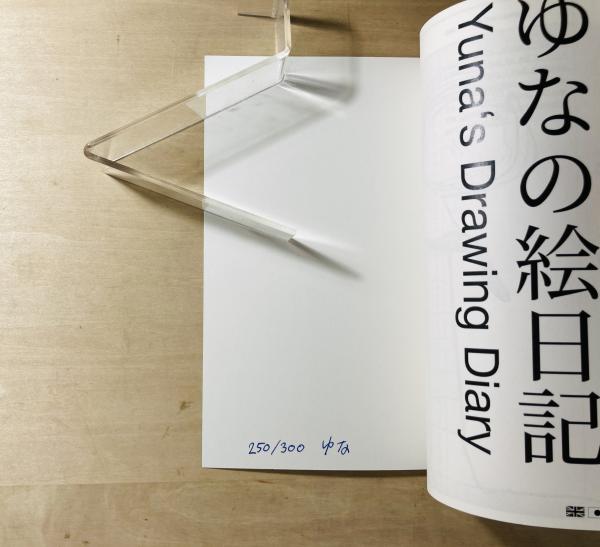 ゆなの絵日記
Yuna's Drawing Diary
250/300 ゆな